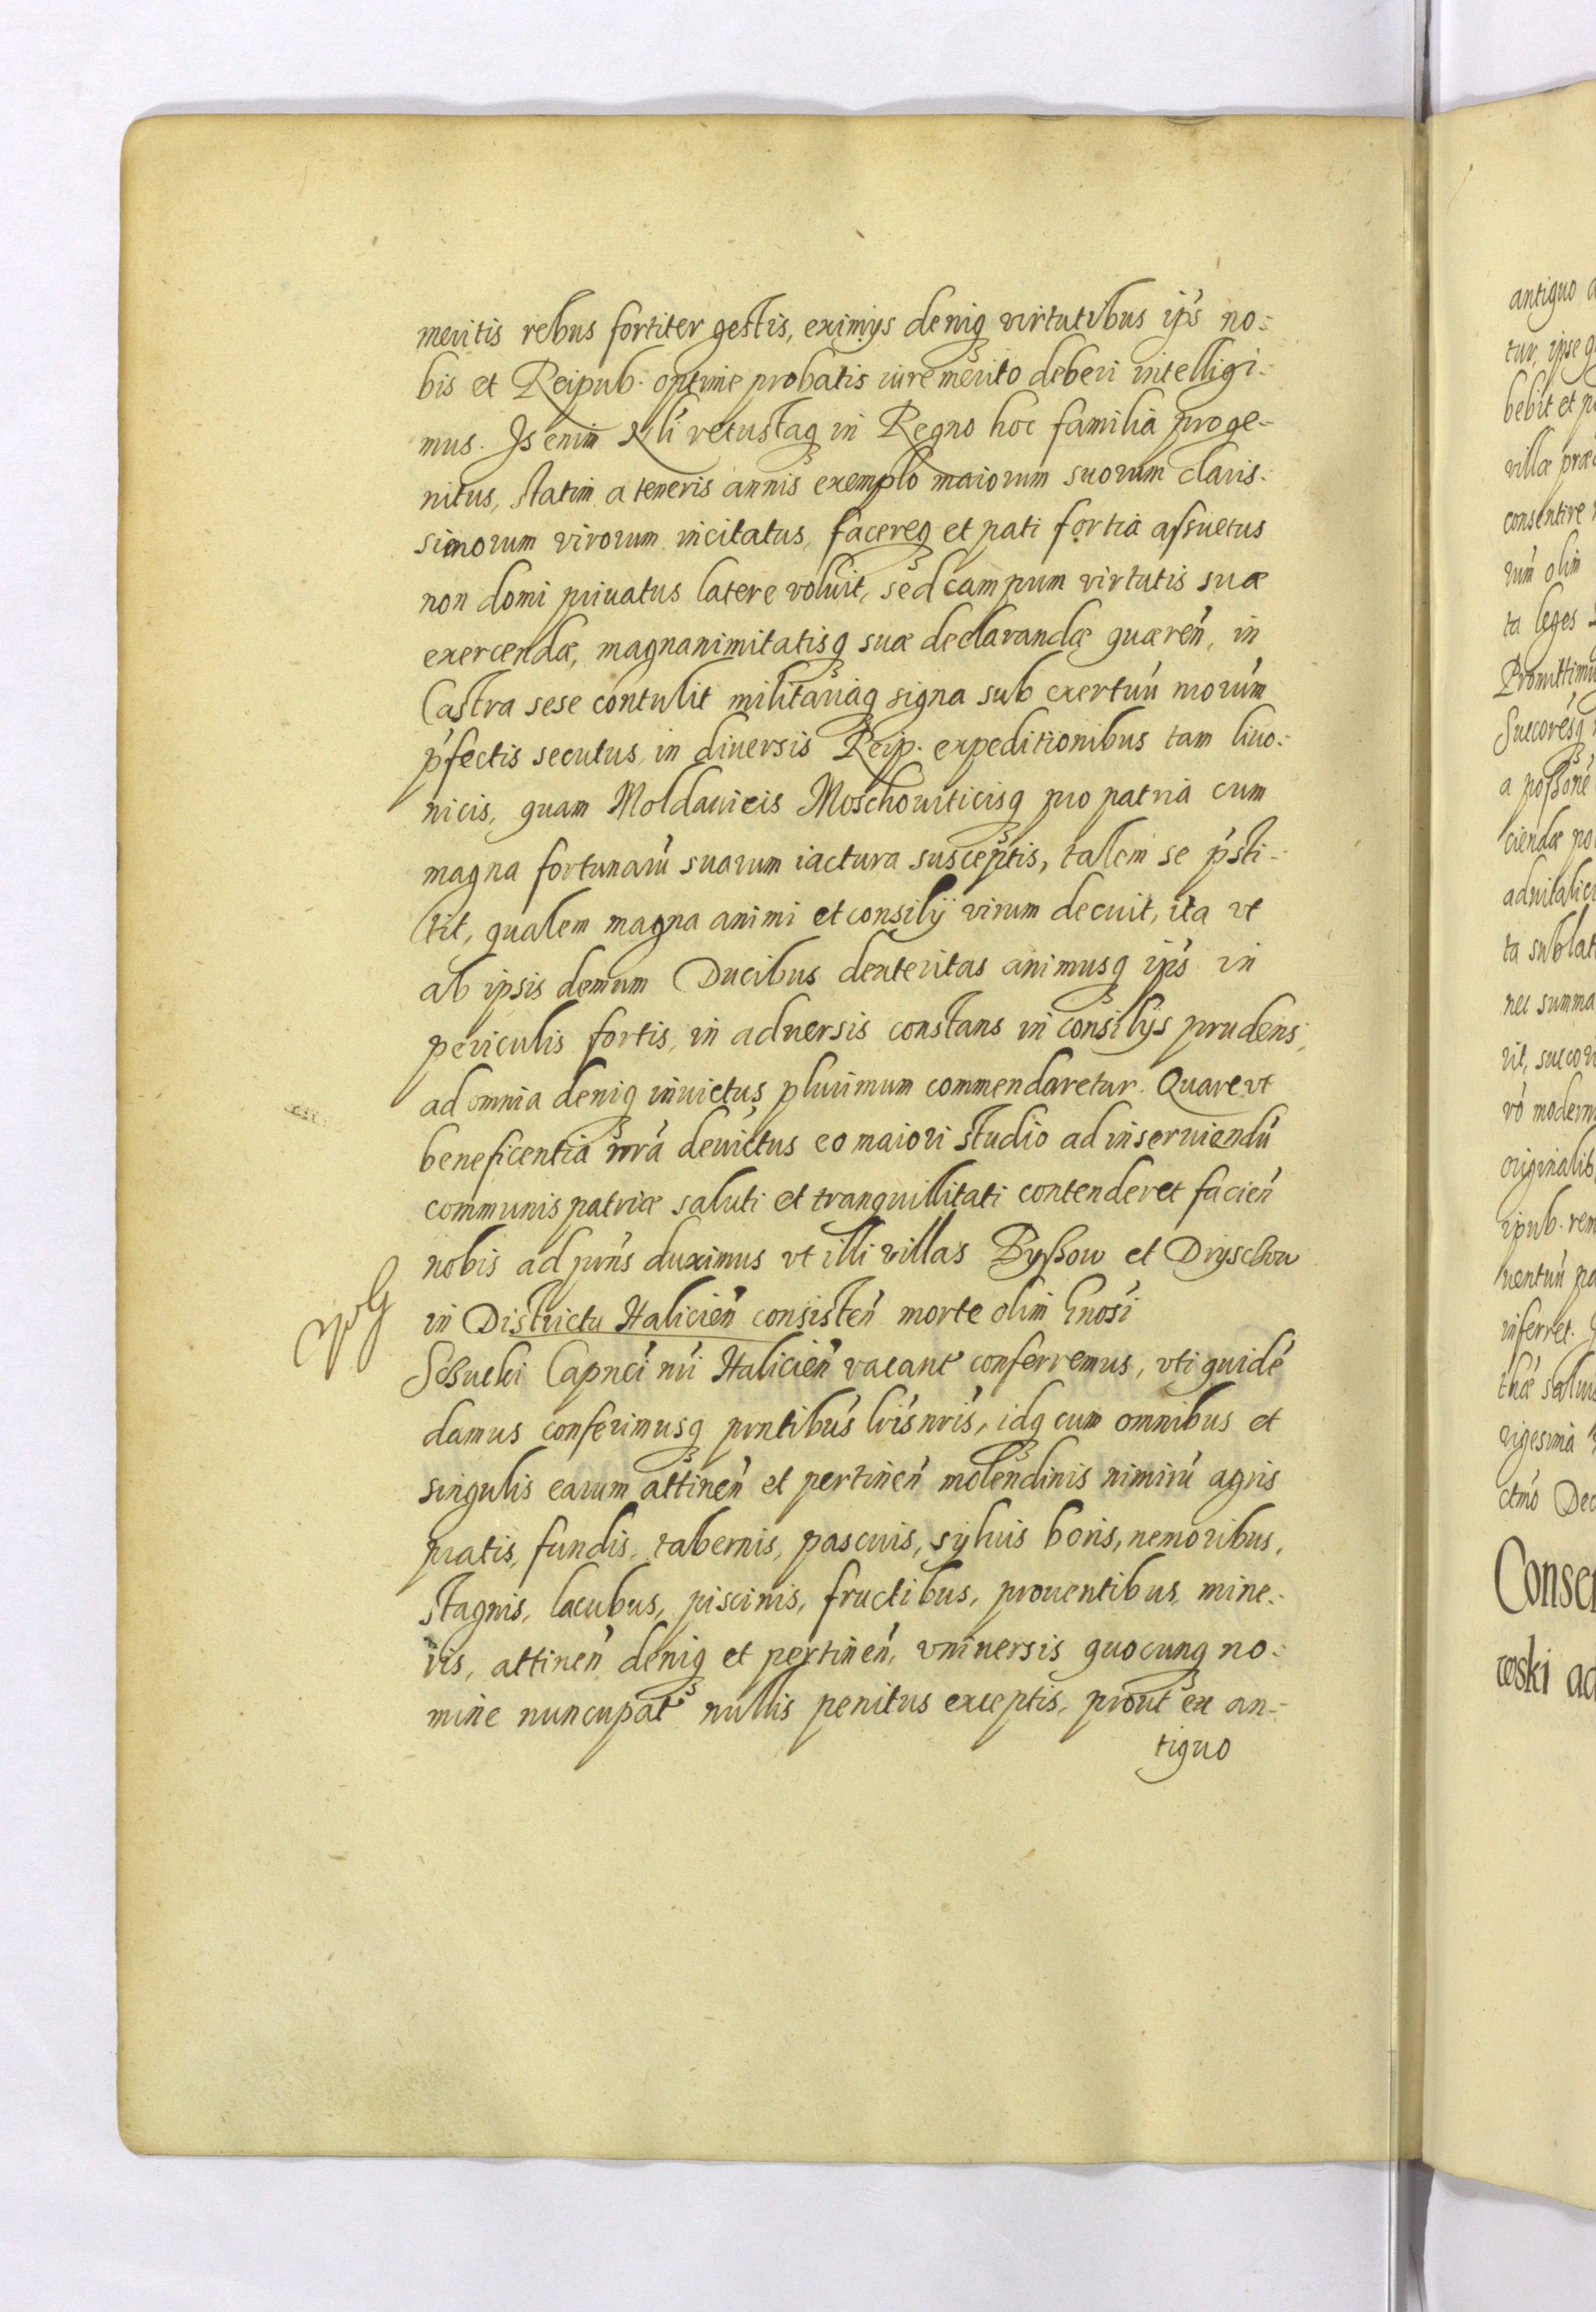 meritis rebus fortiter gestis, eximijs deniq₃ virtutibus ip̃s no-
bis et Reipub. optime probatis iure merito deberi intelligi-
mus. Is enim Nli vetustaq₃ in Regno hoc familia proge-
nitus, statim a teneris annis exemplo maiorum suorum claris-
simorum virorum incitatus, facereq₃ et pati fortia assuetus
non domi priuatus latere voluit, sed campum virtutis suæ
exercendæ, magnanimitatisq₃ suæ declarandæ quæreñ, in
Castra sese contulit militariaq₃ signa sub exertuũ ñrorũm
p̃fectis secutus, in diuersis Reip. expeditionibus tam liuo-
nicis, quam Moldauicis Moschouiticisq₃ pro patria cum
magna fortunarũ suarum iactura susceptis, talem se p̃sti-
tit, qualem magna animi et consilij virum decuit, ita vt
ab ipsis demum Ducibus dexteritas animusq₃ ip̃s in
periculis fortis, in aduersis constans in consilijs prudens,
ad omnia deniq₃ inuictus plurimum commendaretur. Quare vt
beneficentia ñra deuictus eo maiori studio ad inseruiendũ
communis patriæ saluti et tranquillitati contenderet facieñ
nobis ad p̃ns duximus vt illi villas Byssow et Dryschow
in Districtu Haliciẽn consisteñ morte olim Gnosi
Capnei ñri Haliciẽn vacant conferremus, vti quidẽ
damus conferimusq₃ p̃ntibus lr̃is ñris, idq₃ cum omnibus et
singulis earum attineñ et pertineñ molendinis nimirũ agris
pratis, fundis, tabernis, pascuis, syluis boris, nemoribus,
stagnis, lacubus, piscinis, fructibus, prouentibus, mine-
ris, attineñ deniq₃ et pertineñ, vniuersis quocunq₃ no-
mine nuncupat nullis penitus exceptis, prout ex an-
tiquo